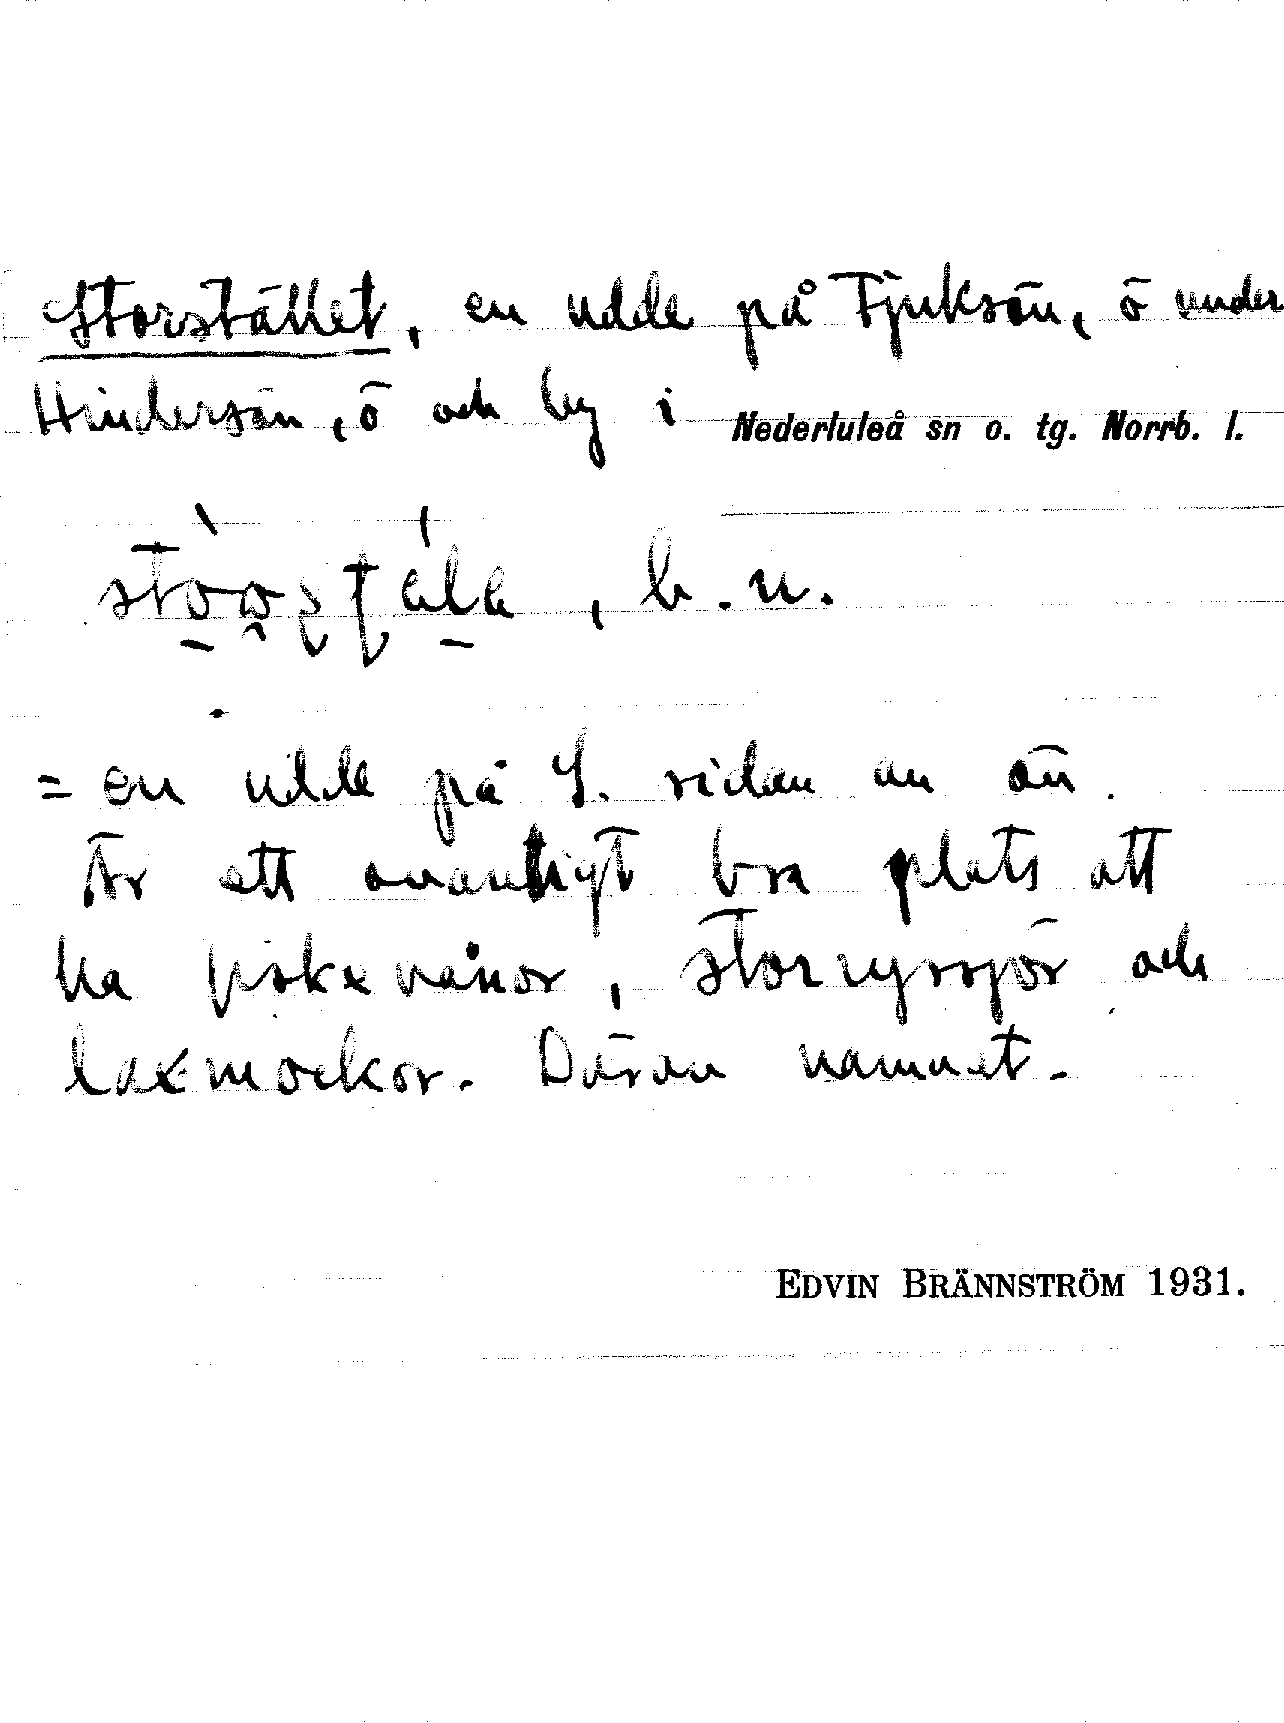 Storstället, en udde på Tjuksön, ö under
Hindersön, ö och by i Nederluleå sn o. tg. Norrb. l.
, b. n.
= en udde på S. sidan av ön.
Är ett ovanligt bra plats att
ha och
laxmockor. Därav namnet.
EDVIN BRÄNNSTRÖM 1931.